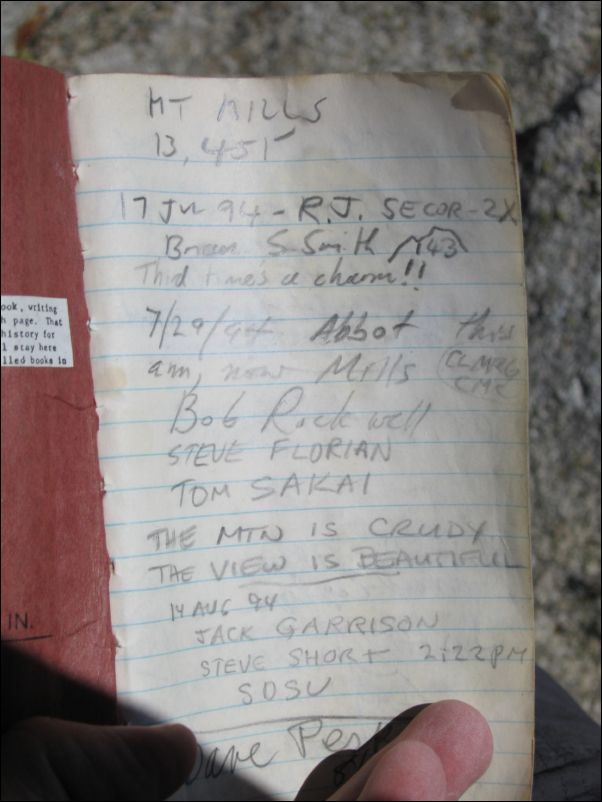 ook, writing
h page. That
history for
l stay here
lled books in
IN.
MT MILLS
13,451
17 Jul 94 - R.J. SECOR - 2X
Brian S. Smith 43
Third time's a charm!!
7/29/94 Abbot this
am, now Mills CLMRG
CMC
Bob Rockwell
STEVE FLORIAN
TOM SAKAI
THE MTN IS CRUDY
THE VIEW IS BEAUTIFUL
14 AUG 94
JACK GARRISON
STEVE SHORT 2:22PM
SOSU
Dave